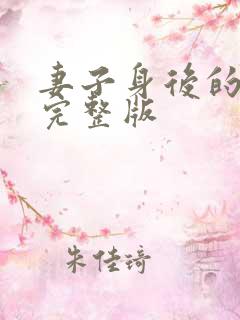 妻子身後的
完整版
朱佳琦